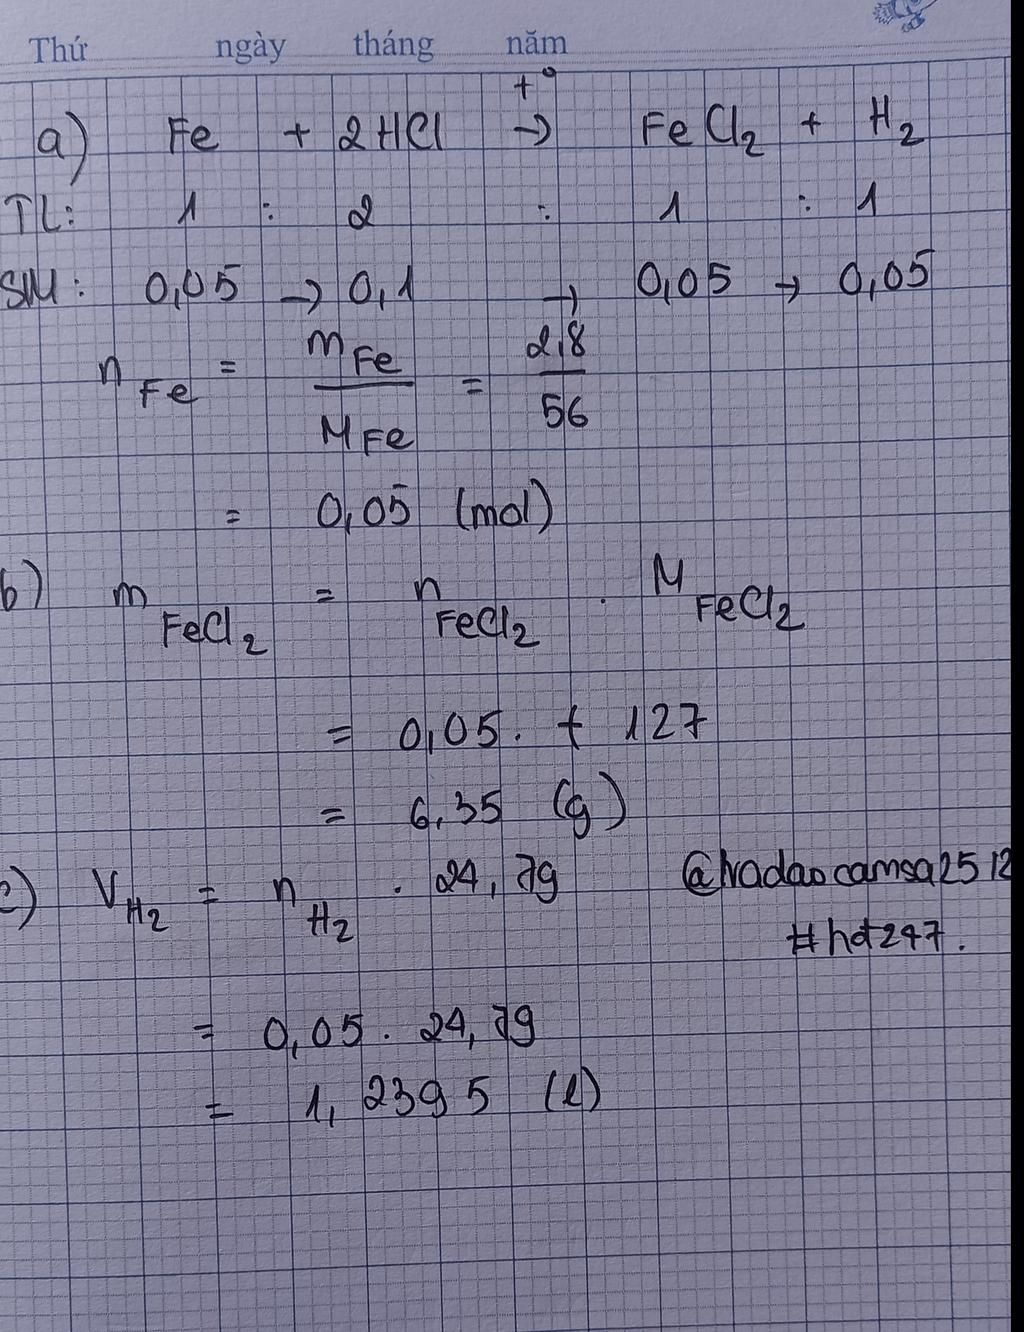 Thứ ngày tháng năm
a) Fe + 2HCl t° → FeCl2 + H2
TL: 1 : 2 : 1 : 1
SM: 0,05 → 0,1 → 0,05 → 0,05
n Fe = m Fe / M Fe = 2,8 / 56
= 0,05 (mol)
b) m FeCl2 = n FeCl2 . M FeCl2
= 0,05 . + 127
= 6,35 (g)
c) V H2 = n H2 . 24,79
@hadaocamsa2512
#hdt247.
= 0,05 . 24,79
= 1,2395 (l)